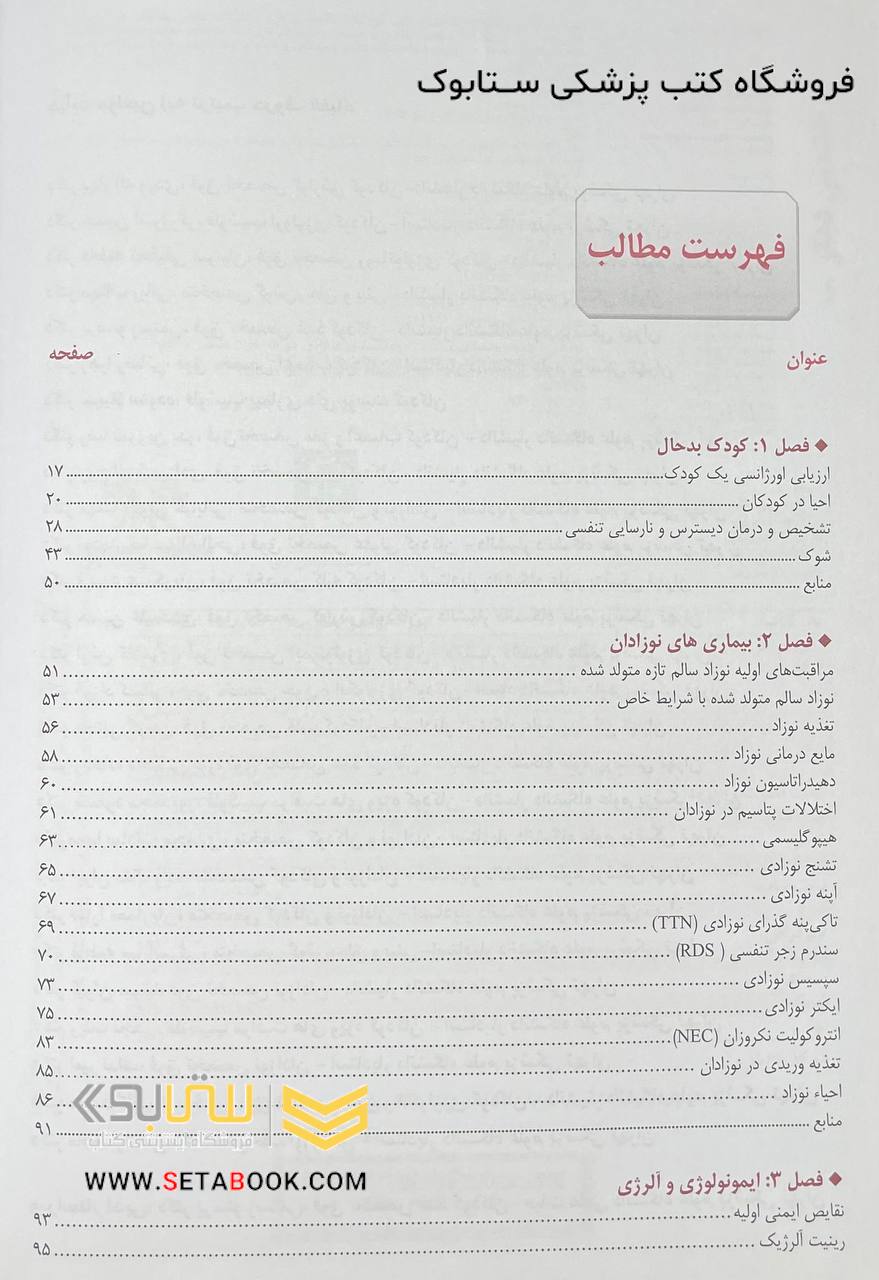 فروشگاه کتب پزشکی ستابوک
فهرست مطالب
عنوان صفحه
◆ فصل ۱: کودک بدحال
ارزیابی اورژانسی یک کودک ۱۷
احیا در کودکان ۲۰
تشخیص و درمان دیسترس و نارسایی تنفسی ۲۸
شوک ۴۳
منابع ۵۰
◆ فصل ۲: بیماری های نوزادان
مراقبت‌های اولیه نوزاد سالم تازه متولد شده ۵۱
نوزاد سالم متولد شده با شرایط خاص ۵۳
تغذیه نوزاد ۵۶
مایع درمانی نوزاد ۵۸
دهیدراتاسیون نوزاد ۶۰
اختلالات پتاسیم در نوزادان ۶۱
هیپوگلیسمی ۶۳
تشنج نوزادی ۶۵
آپنه نوزادی ۶۷
تاکی‌پنه گذرای نوزادی (TTN) ۶۹
سندرم زجر تنفسی ( RDS) ۷۰
سپسیس نوزادی ۷۳
ایکتر نوزادی ۷۵
انتروکولیت نکروزان (NEC) ۸۳
تغذیه وریدی در نوزادان ۸۵
احیاء نوزاد ۸۶
منابع ۹۱
ستابوک
فروشگاه اینترنتی کتاب
WWW.SETABOOK.COM
◆ فصل ۳: ایمونولوژی و آلرژی
نقایص ایمنی اولیه ۹۳
رینیت آلرژیک ۹۵